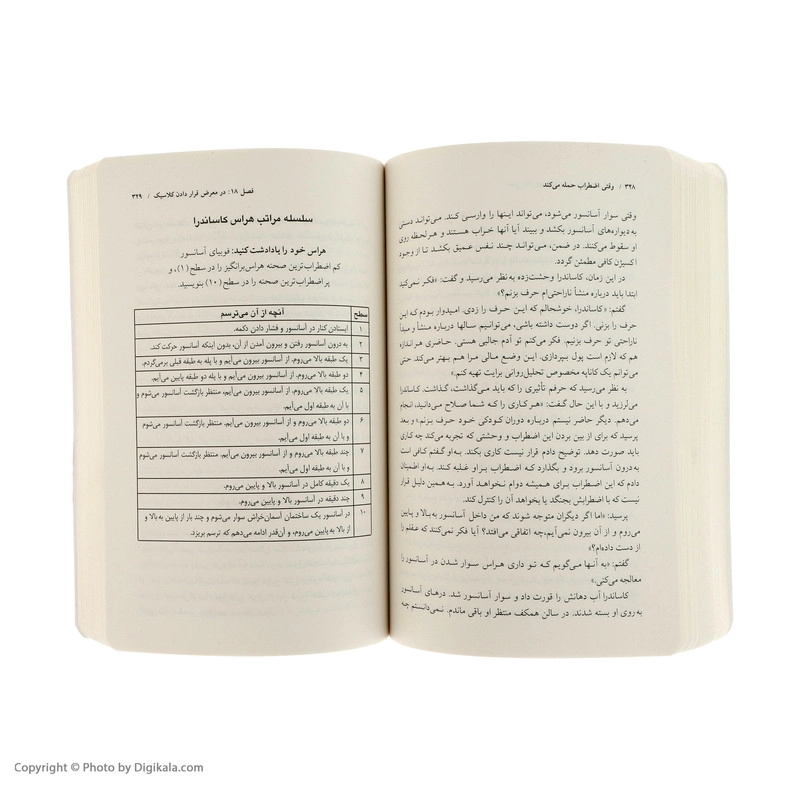 ۳۲۸ / وقتی اضطراب حمله می‌کند
وقتی سوار آسانسور می‌شود، می‌تواند اینها را وارسی کند. می‌تواند دستی
به دیواره‌های آسانسور بکشد و ببیند آیا آنها خراب هستند و هرلحظه روی
او سقوط می‌کنند. در ضمن، می‌تواند چند نفس عمیق بکشد تا از وجود
اکسیژن کافی مطمئن گردد.
در این زمان، کاساندرا وحشت‌زده به‌نظر می‌رسید و گفت: «فکر نمی‌کنید
ابتدا باید درباره منشأ ناراحتی‌ام حرف بزنم؟»
گفتم: «کاساندرا، خوشحالم که این حرف را زدی. امیدوار بودم که این
حرف را بزنی. اگر دوست داشته باشی، می‌توانیم سالها درباره منشأ و مبدأ
ناراحتی تو حرف بزنیم. فکر می‌کنم تو آدم جالبی هستی. حاضری هراندازه
هم که لازم است پول بپردازی. این وضع مالی مرا هم بهتر می‌کند. حتی
می‌توانم یک کاناپه مخصوص تحلیل‌روانی برایت تهیه کنم.»
به نظر می‌رسید که حرفم تأثیری را که باید می‌گذاشت، گذاشت. کاساندرا
می‌لرزید و با این حال گفت: «هرکاری را که شما صلاح می‌دانید، انجام
می‌دهم. دیگر حاضر نیستم درباره دوران کودکی خود حرف بزنم.» و بعد
پرسید که برای از بین بردن این اضطراب و وحشتی که تجربه می‌کند چه کاری
باید صورت دهد. توضیح دادم قرار نیست کاری بکند. به‌او گفتم کافی است
به‌درون آسانسور برود و بگذارد که اضطراب بر او غلبه کند. به‌او اطمینان
دادم که این اضطراب برای همیشه دوام نخواهد آورد. به همین دلیل قرار
نیست که با اضطرابش بجنگد یا بخواهد آن را کنترل کند.
پرسید: «اما اگر دیگران متوجه شوند که من داخل آسانسور به‌بالا و پایین
می‌روم و از آن بیرون نمی‌آیم، چه اتفاقی می‌افتد؟ آیا فکر نمی‌کنند که عقلم را
از دست داده‌ام؟»
گفتم: «به آنها می‌گویم که تو داری هراس سوار شدن در آسانسور را
معالجه می‌کنی.»
کاساندرا آب دهانش را قورت داد و سوار آسانسور شد. درهای آسانسور
به روی او بسته شدند. در سالن همکف منتظر او باقی ماندم. نمی‌دانستم چه
فصل ۱۸: در معرض قرار دادن کلاسیک / ۳۲۹
سلسله مراتب هراس کاساندرا
هراس خود را یادداشت کنید: فوبیای آسانسور
کم اضطراب‌ترین صحنه هراس‌برانگیز را در سطح (۱)، و
پر اضطراب‌ترین صحنه را در سطح (۱۰) بنویسید.
سطح آنچه از آن می‌ترسم
۱ ایستادن کنار در آسانسور و فشار دادن دکمه.
۲ به درون آسانسور رفتن و بیرون آمدن از آن، بدون اینکه آسانسور حرکت کند.
۳ یک طبقه بالا می‌روم. از آسانسور بیرون می‌آیم و با پله به طبقه قبلی برمی‌گردم.
۴ دو طبقه بالا می‌روم. از آسانسور بیرون می‌آیم و با پله دو طبقه پایین می‌آیم.
۵ یک طبقه بالا می‌روم، از آسانسور بیرون می‌آیم، منتظر بازگشت آسانسور می‌شوم و
با آن به طبقه اول می‌آیم.
۶ دو طبقه بالا می‌روم و از آسانسور بیرون می‌آیم. منتظر بازگشت آسانسور می‌شوم
و با آن به طبقه اول می‌آیم.
۷ چند طبقه بالا می‌روم و از آسانسور بیرون می‌آیم، منتظر بازگشت آسانسور می‌شوم
و با آن به طبقه اول می‌آیم.
۸ یک دقیقه کامل در آسانسور بالا و پایین می‌روم.
۹ چند دقیقه در آسانسور بالا و پایین می‌روم.
۱۰ در آسانسور یک ساختمان آسمان‌خراش سوار می‌شوم و چند بار از پایین به‌بالا و
از بالا به پایین می‌روم، و آن‌قدر ادامه می‌دهم که ترسم بریزد.
Copyright © Photo by Digikala.com